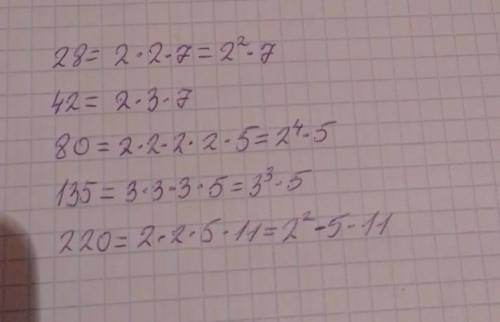 28 = 2 · 2 · 7 = 2² · 7
42 = 2 · 3 · 7
80 = 2 · 2 · 2 · 2 · 5 = 2⁴ · 5
135 = 3 · 3 · 3 · 5 = 3³ · 5
220 = 2 · 2 · 5 · 11 = 2² · 5 · 11